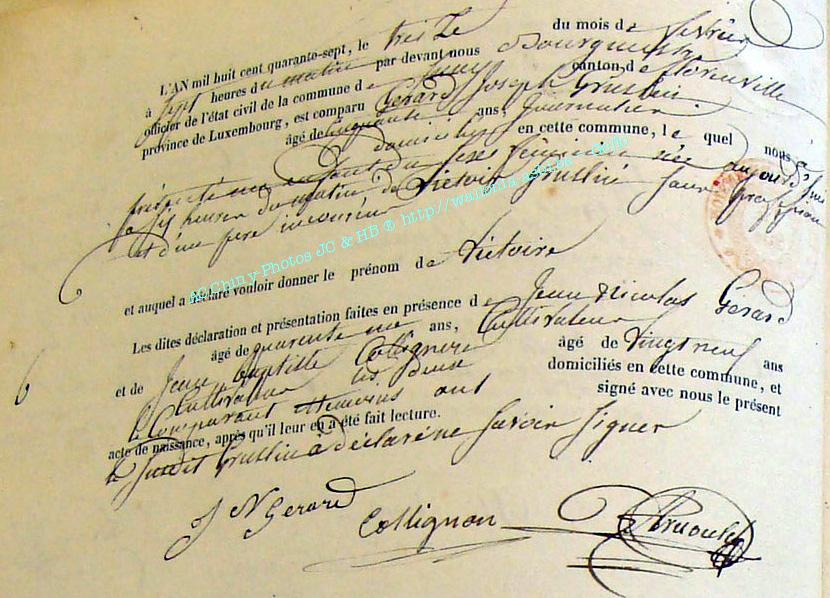 L'AN mil huit cent quarante-sept, le treize du mois de février
à sept heures du matin par devant nous Bourguemestre
officier de l'état civil de la commune de canton de florenville
province de Luxembourg, est comparu Gérard Joseph Grussin
âgé de cinquante ans, journalier
domicilié en cette commune, lequel nous a
présenté un enfant du sexe féminin née aujourd'hui
à six heures du matin de Victoire Grussin sans profession
et d'un père inconnu
et auquel a déclaré vouloir donner le prénom de Victoire
Les dites déclaration et présentation faites en présence de Jean Nicolas Gérard
âgé de quarante ans, Cultivateur
et de Jean Baptiste Collignon âgé de vingt neuf ans
Cultivateur domiciliés en cette commune, et
les deux
le Comparant temoins ont signé avec nous le présent
acte de naissance, après qu'il leur en a été fait lecture.
le Susdit Grussin a déclaré ne savoir signer
J N Gerard Collignon
AC Chiny-Photos JC & HB ® http://wallonia.